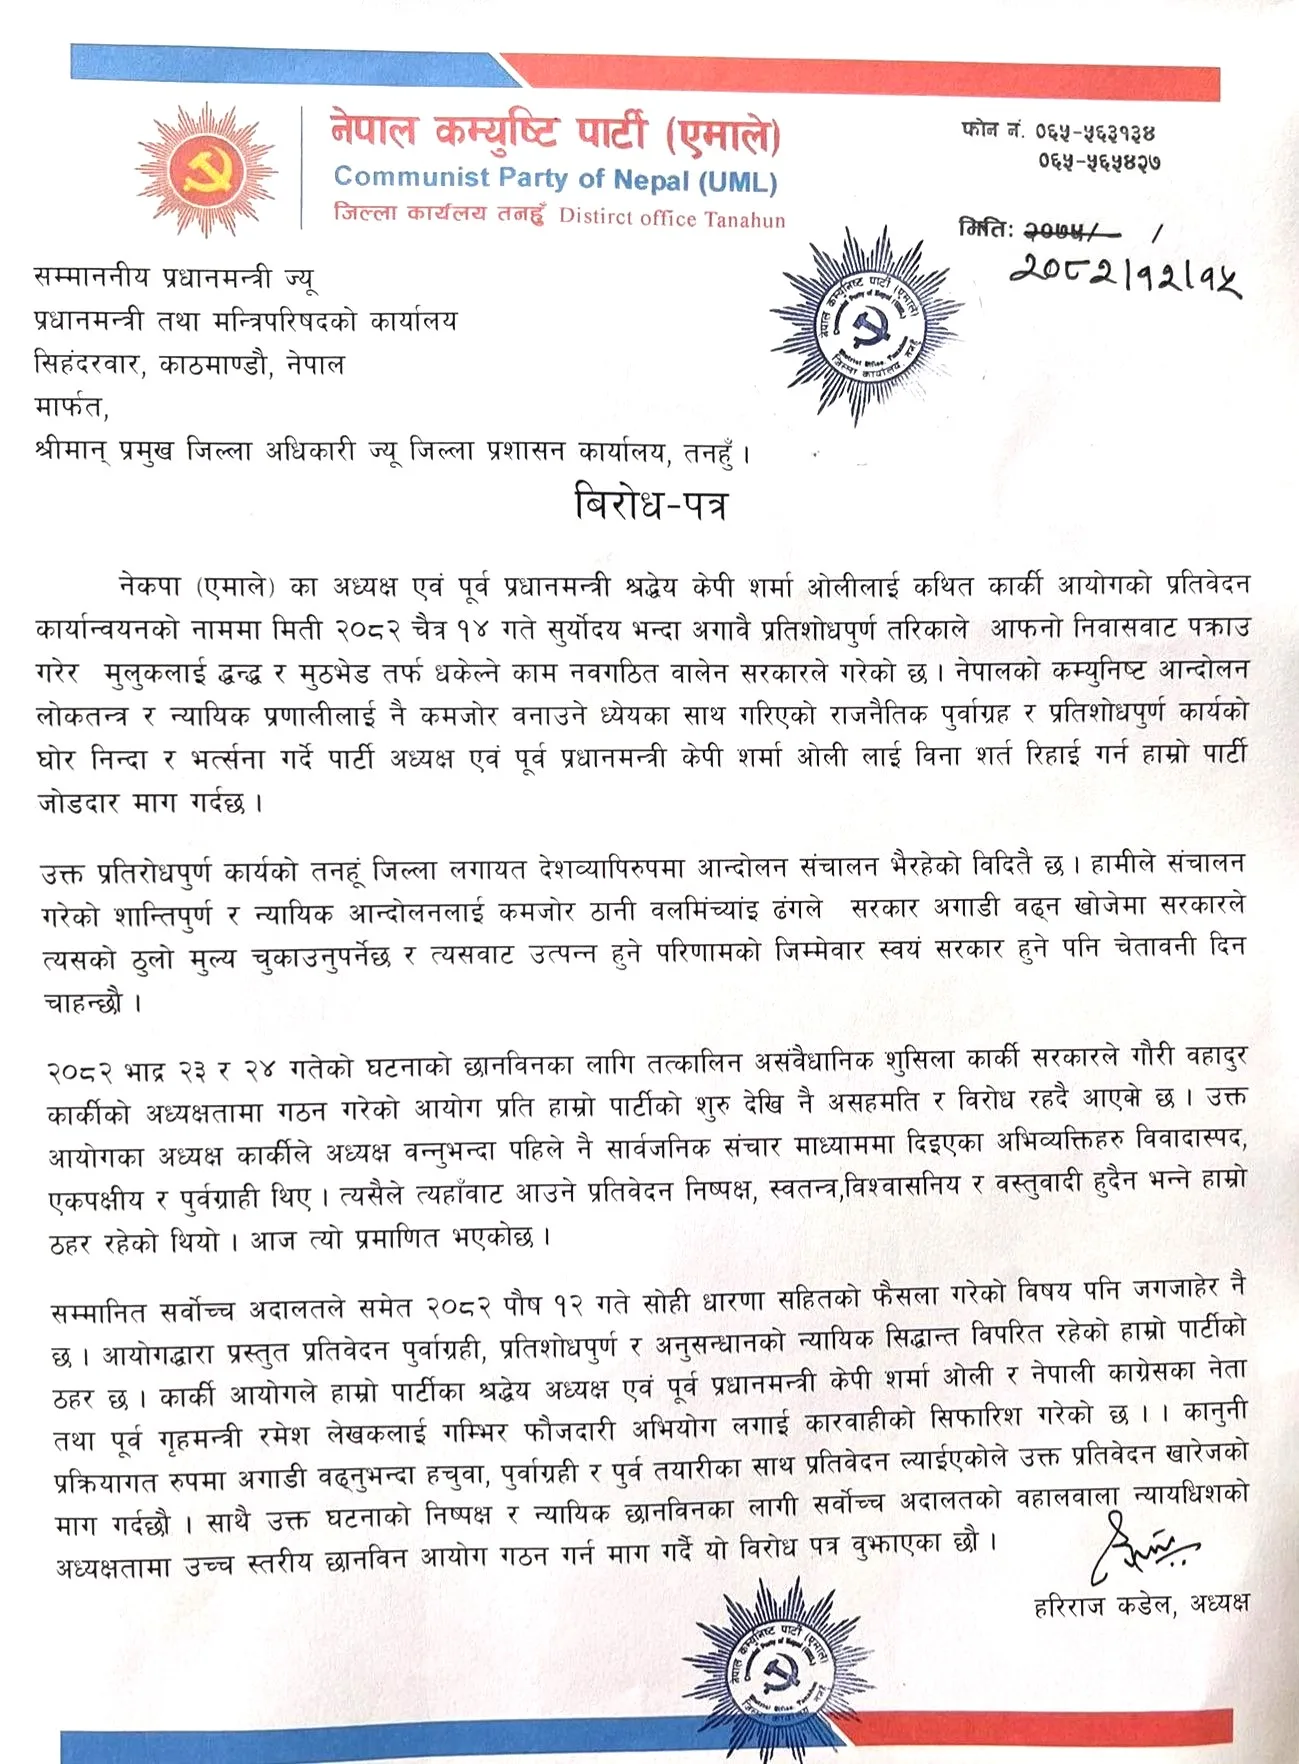 नेपाल कम्युष्टि पार्टी (एमाले)
Communist Party of Nepal (UML)
जिल्ला कार्यलय तनहुँ Distirct office Tanahun
फोन नं. ०६५-५६३१३४
०६५-५६५४२७
मितिः २०७५/ /
२०८२।१२।१५
नेपाल कम्युनिष्ट पार्टी (एमाले)
Communist Party of Nepal (UML)
District Office, Tanahun
जिल्ला कार्यालय तनहुँ
सम्माननीय प्रधानमन्त्री ज्यू
प्रधानमन्त्री तथा मन्त्रिपरिषदको कार्यालय
सिहंदरवार, काठमाण्डौ, नेपाल
मार्फत,
श्रीमान् प्रमुख जिल्ला अधिकारी ज्यू जिल्ला प्रशासन कार्यालय, तनहुँ ।
बिरोध-पत्र
नेकपा (एमाले) का अध्यक्ष एवं पूर्व प्रधानमन्त्री श्रद्धेय केपी शर्मा ओलीलाई कथित कार्की आयोगको प्रतिवेदन
कार्यान्वयनको नाममा मिती २०८२ चैत्र १४ गते सुर्योदय भन्दा अगावै प्रतिशोधपुर्ण तरिकाले आफनो निवासवाट पक्राउ
गरेर मुलुकलाई द्धन्द्ध र मुठभेड तर्फ धकेल्ने काम नवगठित वालेन सरकारले गरेको छ । नेपालको कम्युनिष्ट आन्दोलन
लोकतन्त्र र न्यायिक प्रणालीलाई नै कमजोर वनाउने ध्येयका साथ गरिएको राजनैतिक पुर्वाग्रह र प्रतिशोधपुर्ण कार्यको
घोर निन्दा र भर्त्सना गर्दे पार्टी अध्यक्ष एवं पूर्व प्रधानमन्त्री केपी शर्मा ओली लाई विना शर्त रिहाई गर्न हाम्रो पार्टी
जोडदार माग गर्दछ ।
उक्त प्रतिरोधपुर्ण कार्यको तनहूं जिल्ला लगायत देशव्यापिरुपमा आन्दोलन संचालन भैरहेको विदितै छ । हामीले संचालन
गरेको शान्तिपुर्ण र न्यायिक आन्दोलनलाई कमजोर ठानी वलमिंच्यांइ ढंगले सरकार अगाडी वढ्न खोजेमा सरकारले
त्यसको ठुलो मुल्य चुकाउनुपर्नेछ र त्यसवाट उत्पन्न हुने परिणामको जिम्मेवार स्वयं सरकार हुने पनि चेतावनी दिन
चाहन्छौ ।
२०८२ भाद्र २३ र २४ गतेको घटनाको छानविनका लागि तत्कालिन असंवैधानिक शुसिला कार्की सरकारले गौरी वहादुर
कार्कीको अध्यक्षतामा गठन गरेको आयोग प्रति हाम्रो पार्टीको शुरु देखि नै असहमति र विरोध रहदै आएको छ । उक्त
आयोगका अध्यक्ष कार्कीले अध्यक्ष वन्नुभन्दा पहिले नै सार्वजनिक संचार माध्याममा दिइएका अभिव्यक्तिहरु विवादास्पद,
एकपक्षीय र पुर्वग्राही थिए । त्यसैले त्यहाँवाट आउने प्रतिवेदन निष्पक्ष, स्वतन्त्र,विश्वासनिय र वस्तुवादी हुदैन भन्ने हाम्रो
ठहर रहेको थियो । आज त्यो प्रमाणित भएकोछ ।
सम्मानित सर्वोच्च अदालतले समेत २०८२ पौष १२ गते सोही धारणा सहितको फैसला गरेको विषय पनि जगजाहेर नै
छ । आयोगद्धारा प्रस्तुत प्रतिवेदन पुर्वाग्रही, प्रतिशोधपुर्ण र अनुसन्धानको न्यायिक सिद्धान्त विपरित रहेको हाम्रो पार्टीको
ठहर छ । कार्की आयोगले हाम्रो पार्टीका श्रद्धेय अध्यक्ष एवं पूर्व प्रधानमन्त्री केपी शर्मा ओली र नेपाली काग्रेसका नेता
तथा पूर्व गृहमन्त्री रमेश लेखकलाई गम्भिर फौजदारी अभियोग लगाई कारवाहीको सिफारिश गरेको छ । । कानुनी
प्रक्रियागत रुपमा अगाडी वढ्नुभन्दा हचुवा, पुर्वाग्रही र पुर्व तयारीका साथ प्रतिवेदन ल्याईएकोले उक्त प्रतिवेदन खारेजको
माग गर्दछौ । साथै उक्त घटनाको निष्पक्ष र न्यायिक छानविनका लागी सर्वोच्च अदालतको वहालवाला न्यायधिशको
अध्यक्षतामा उच्च स्तरीय छानविन आयोग गठन गर्न माग गर्दै यो विरोध पत्र वुझाएका छौ ।
हरिराज कडेल, अध्यक्ष
नेपाल कम्युनिष्ट पार्टी (एमाले)
Communist Party of Nepal (UML)
District Office, Tanahun
जिल्ला कार्यालय तनहुँ